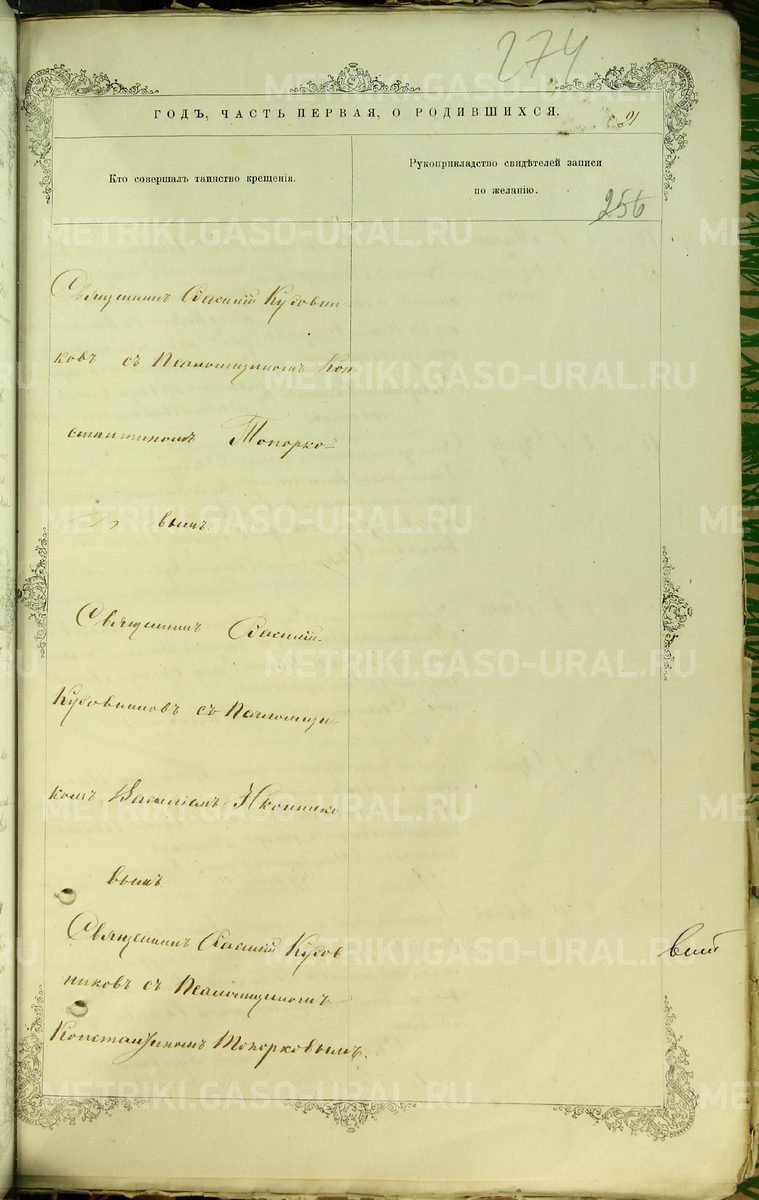 274
ГОДЪ, ЧАСТЬ ПЕРВАЯ, О РОДИВШИХСЯ.
Кто совершалъ таинство крещенія.
Рукоприкладство свидѣтелей записи
по желанію.
256
Священникъ Василій Кузовни
ковъ съ Псаломщикомъ Кон-
стантиномъ Топорко-
вымъ.
Священникъ Василій
Кузовниковъ съ Псаломщи-
комъ Василіемъ Иконнико-
вымъ
Священникъ Василій Кузов
никовъ съ Псаломщикомъ
Константиномъ Топорковымъ.
METRIKI.GASO-URAL.RU